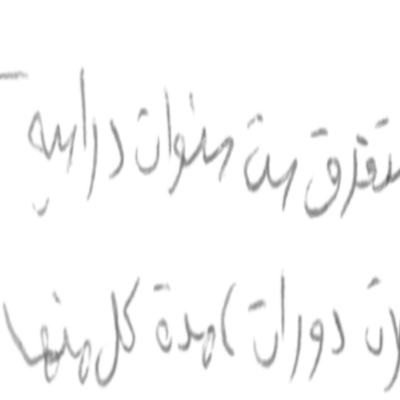 ستغرق ست سنوات دراسية
دورات، مدة كل منها